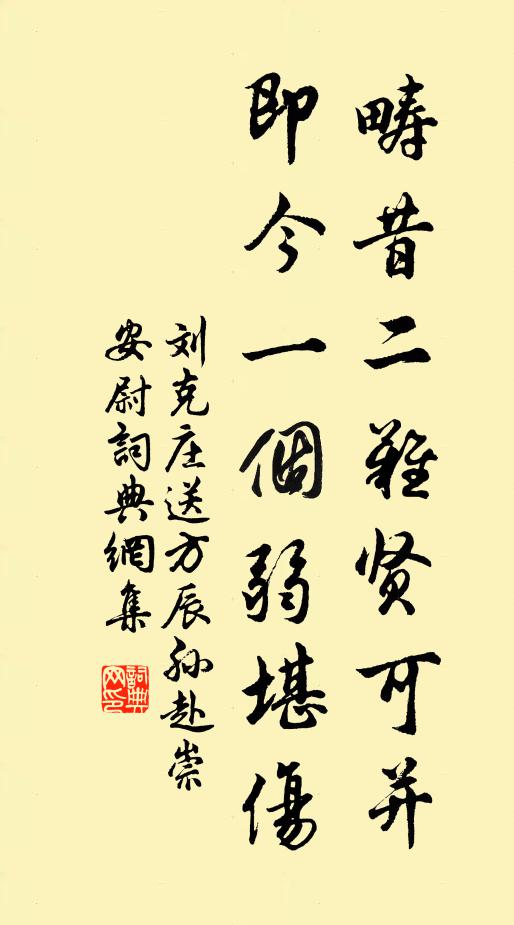 畴昔二難贤可并
即今一個弱堪傷
刘克庄送方辰孙赴崇
安尉詞典網集
詞典
网印